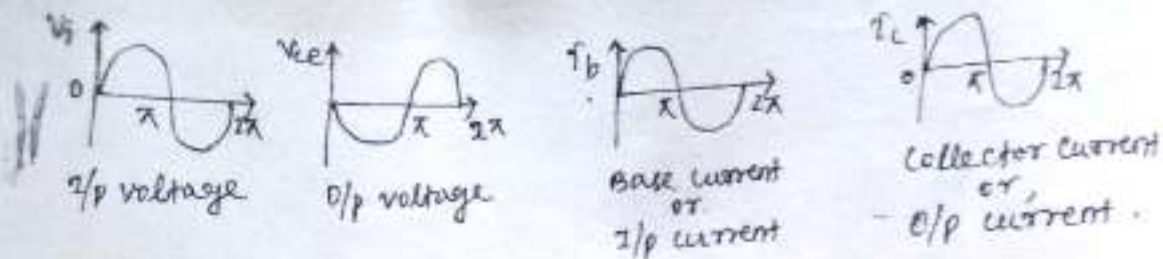 Vi
0
π
2π
I/p voltage
Vce
π
2π
O/p voltage
Ib
π
2π
Base current
or
I/p current
Ic
0
π
2π
Collector current
or,
O/p current.